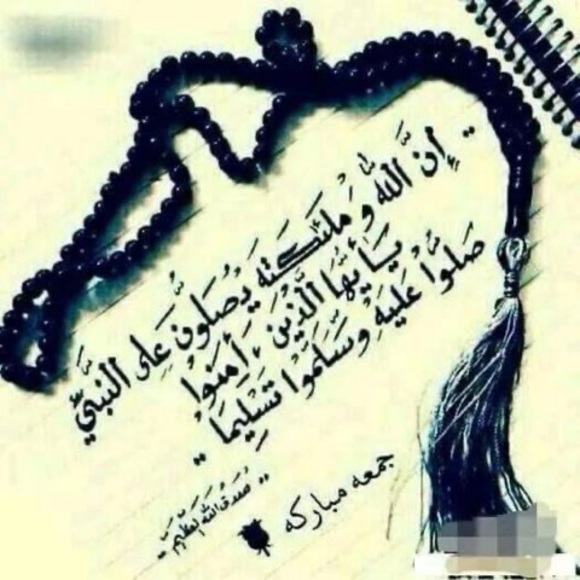 إِنَّ اللَّهَ وَمَلَٰئِكَتَهُ يَصَلُّونَ عَلَى النَّبِيِّ
يَا أَيُّهَا الَّذِينَ ءَامَنُوا
صَلُّوا عَلَيْهِ وَسَلِّمُوا تَسْلِيمًا
صدق الله العظيم
جمعه مباركه